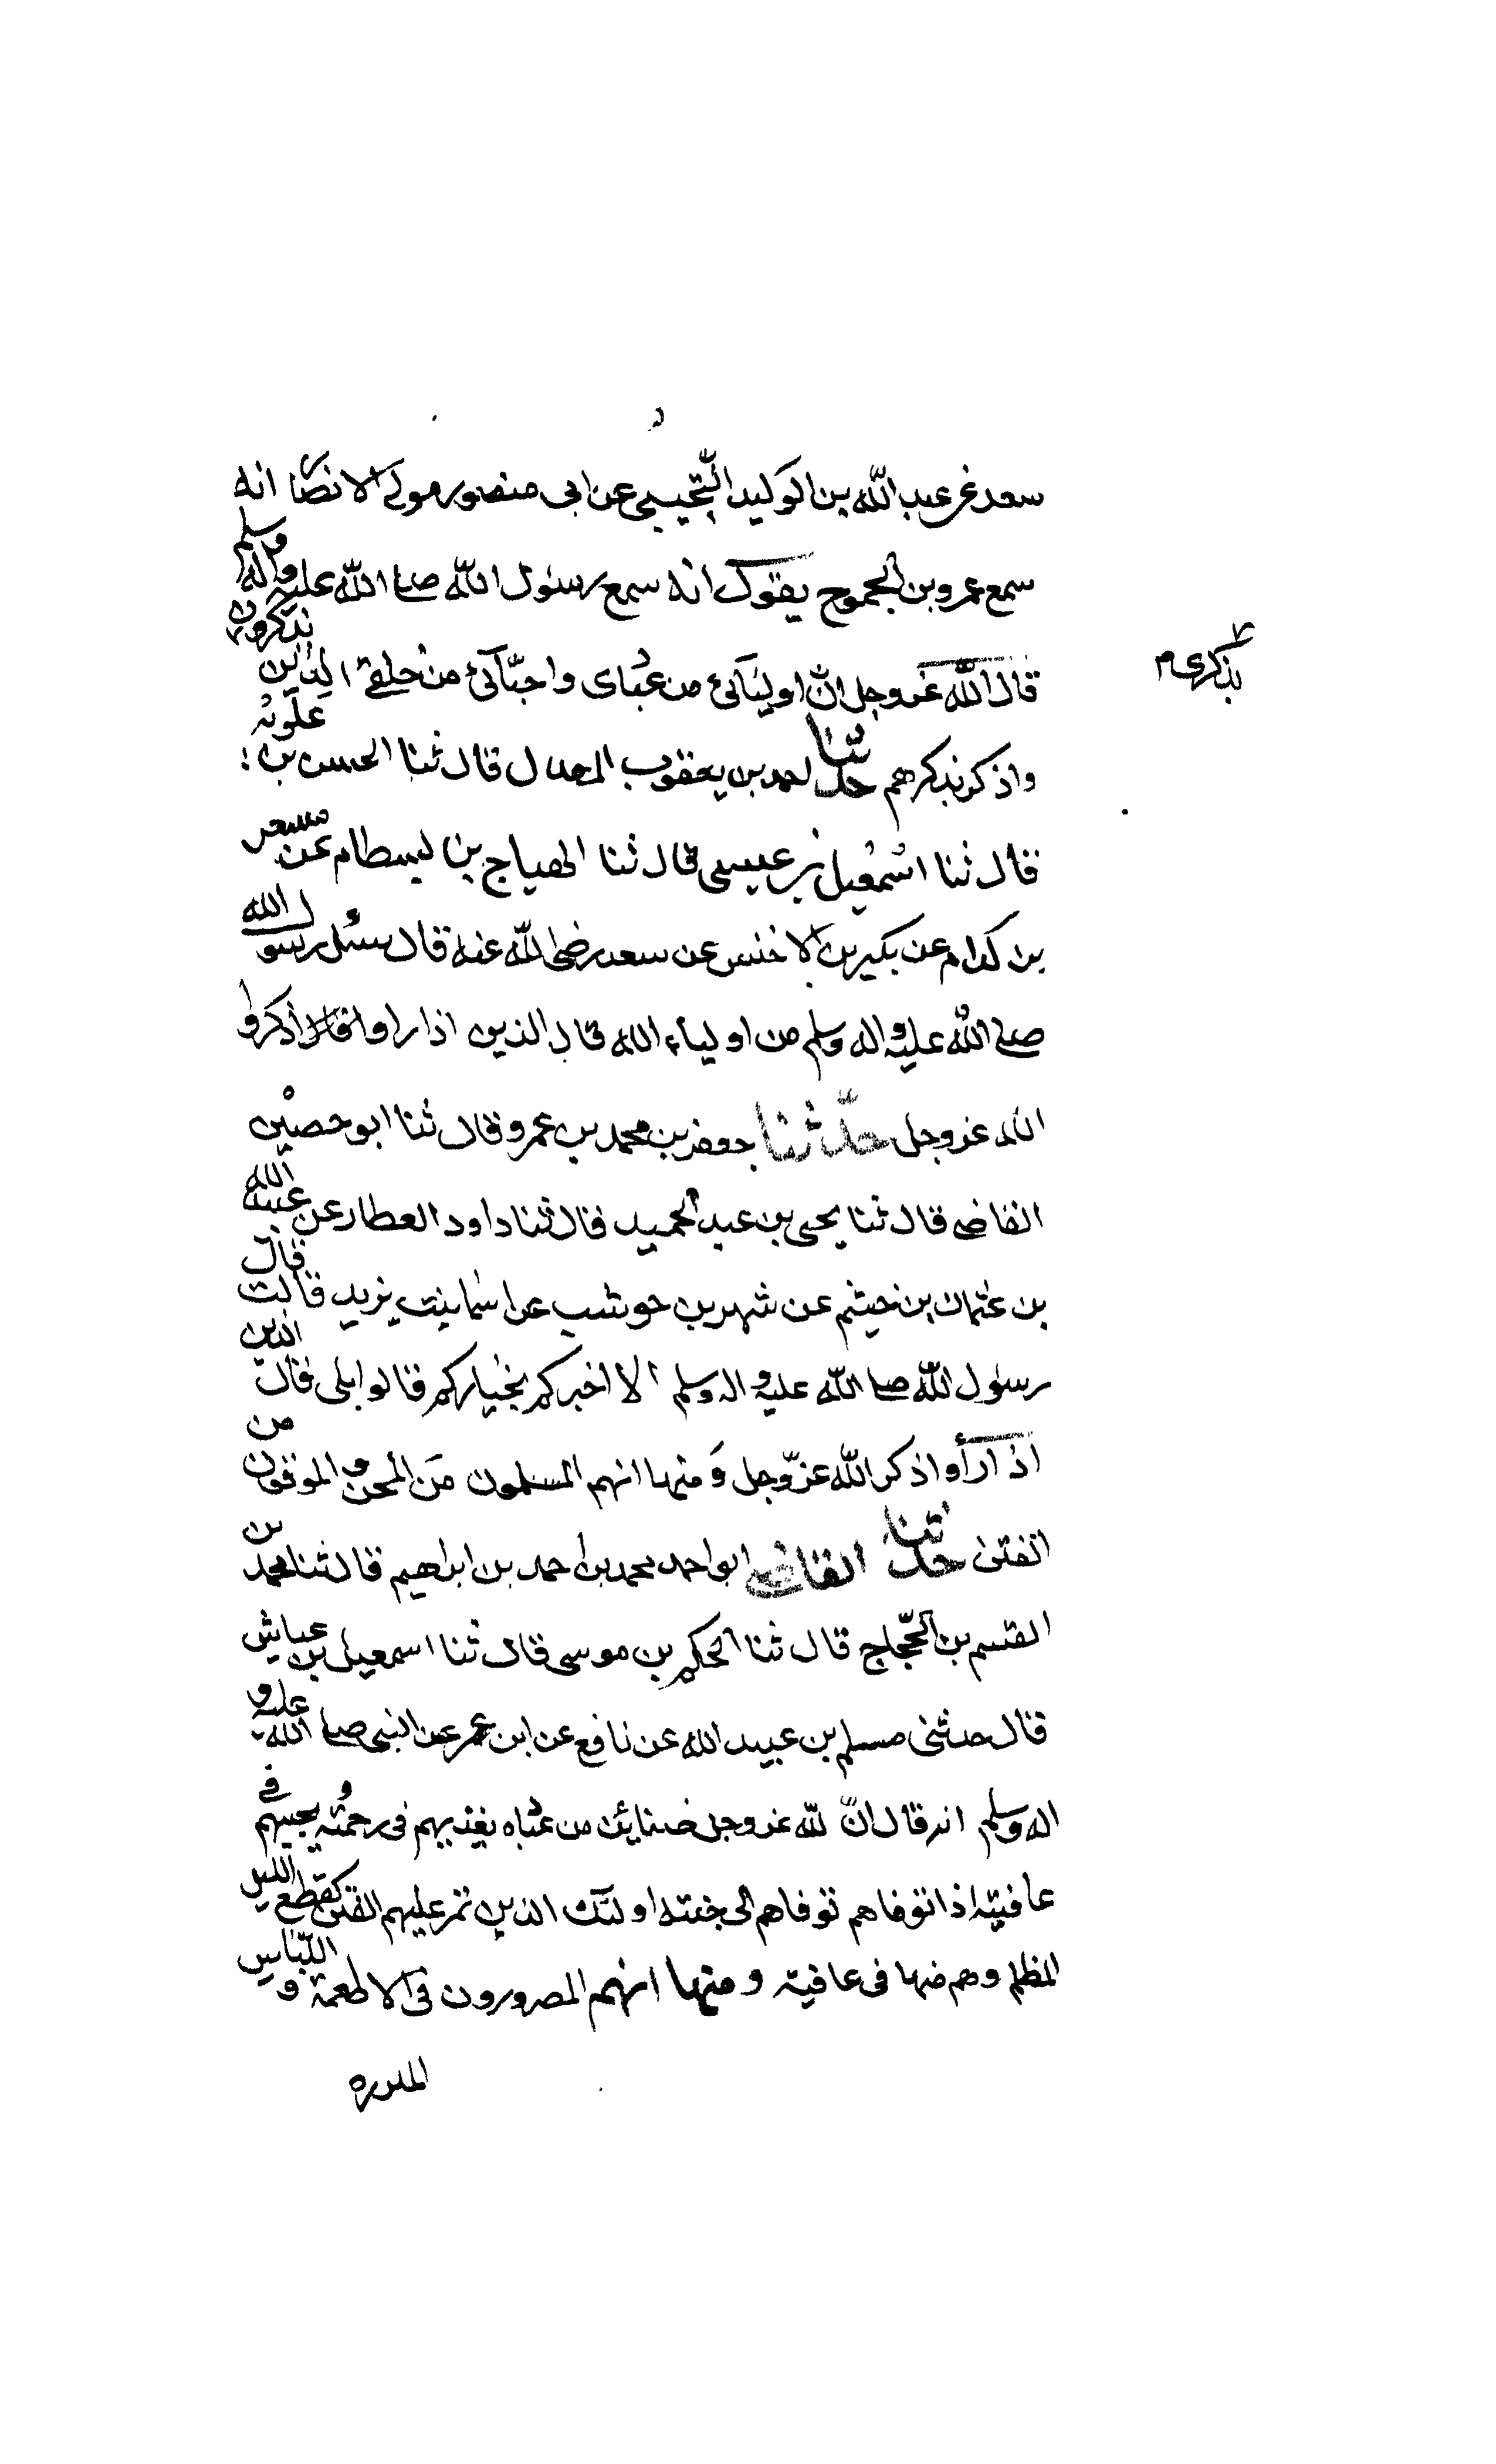 سعد عن عبد الله بن الوليد التجيبي عن ابى منصور مولى الانصار انه
سمع عمرو بن الجموح يقول انه سمع رسول الله صلى الله عليه واله وسلم
قال الله عزوجل انّ اوليآئى من عبادى واحبّآئى من خلقى الذين يذكرون
بذكرى م
واذكر بذكرهم حدثنا احمد بن يعقوب المعدل قال ثنا الحسن بن علويه
قال ثنا اسمعيل بن عيسى قال ثنا الهياج بن بسطام عن مسعر
بن كدام عن بكير بن الاخنس عن سعد رضى الله عنه قال سئل رسول الله
صلى الله عليه واله وسلم من اولياء الله قال الذين اذا راوا ذكروا
الله عزوجل حدّثنا جعفر بن محمد بن عمرو قال ثنا ابو حصين
القاضى قال ثنا يحيى بن عبد الحميد قال ثنا داود العطار عن عبد الله
بن عثمان بن خيثم عن شهر بن حوشب عن اسما بنت يزيد قالت قال
رسول الله صلى الله عليه واله وسلم الا اخبركم بخياركم قالوا بلى قال الذين
اذا رأوا ذكر الله عزّوجل ومنها انهم المسلمون من المحن و الموقون من
الفتن حدثنا القاضى ابو احمد محمد بن احمد بن ابراهيم قال ثنا محمد بن
القسم بن الحجّاج قال ثنا الحكم بن موسى قال ثنا اسمعيل بن عياش
قال حدثنى مسلم بن عبيد الله عن نافع عن ابن عمر عن النبى صلى الله عليه و
اله وسلم انه قال انّ لله عزوجل ضنائن من عباده يغذيهم فى رحمته و يحييهم فى
عافيته اذا توفاهم توفاهم الى جنته اولئك الذين تمر عليهم الفتن كقطع الليل
المظلم وهم منها فى عافية ومنها انهم المضرورون فى الاطعمة و اللباس